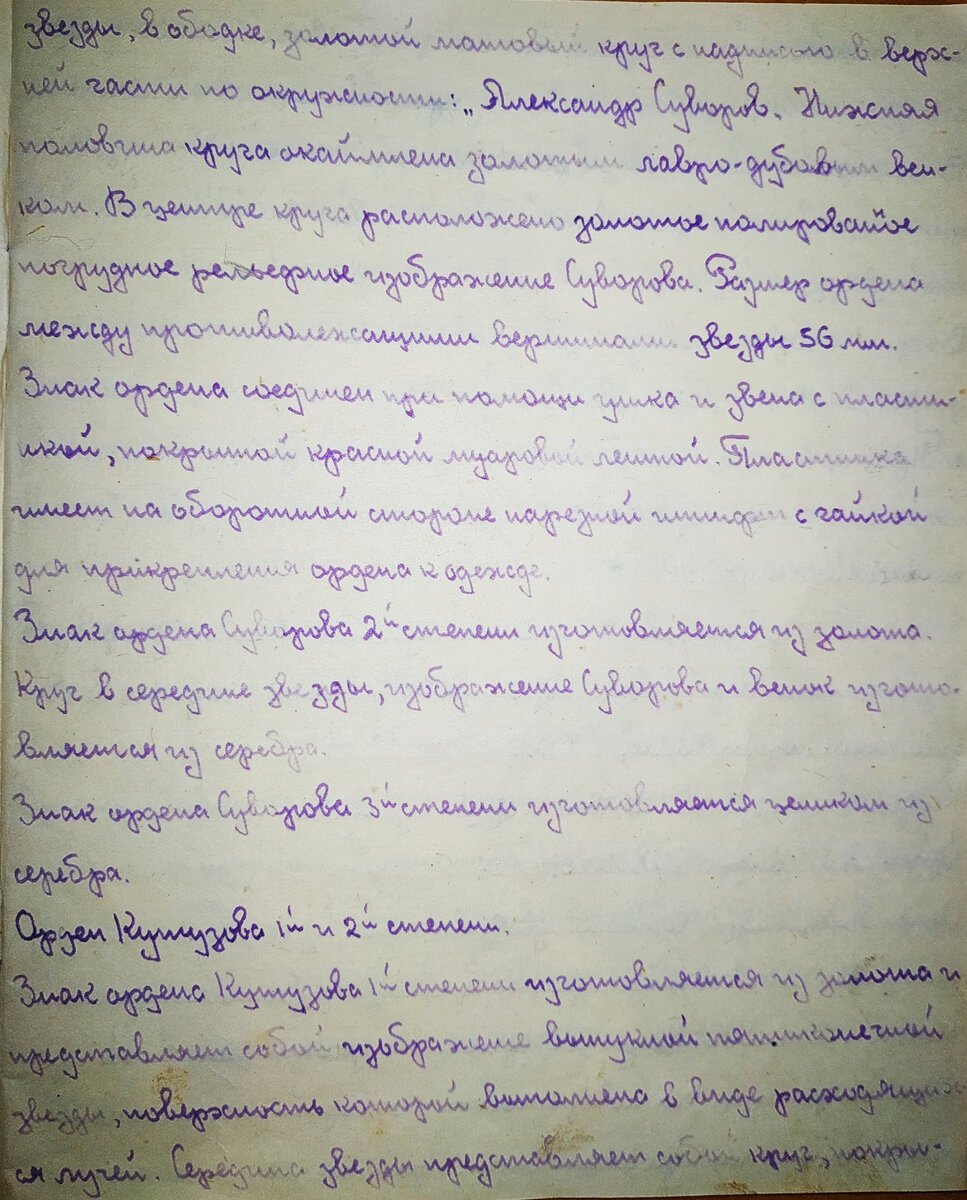 звезды, в ободке, золотой матовый круг с надписью в верх-
ней части по окружности: „Александр Суворов. Нижняя
половина круга окаймлена золотым лавро-дубовым вен-
ком. В центре круга расположено золотое полированое
погрудное рельефное изображение Суворова. Размер ордена
между противолежащими вершинами звезды 56 мм.
Знак ордена соединен при помощи ушка и звена с пласти-
нкой, покрытой красной муаровой лентой. Пластинка
имеет на оборотной стороне нарезной штифт с гайкой
для прикрепления ордена к одежде.
Знак ордена Суворова 2й степени изготовляется из золота.
Круг в середине звезды, изображение Суворова и венок изгото-
вляется из серебра.
Знак ордена Суворова 3й степени изготовляется целиком из
серебра.
Орден Кутузова 1й и 2й степени.
Знак ордена Кутузова 1й степени изготовляется из золота и
представляет собой изображение выпуклой пятиконечной
звезды, поверхность которой выполнена в виде расходящих-
ся лучей. Середина звезды представляет собой круг, покры-